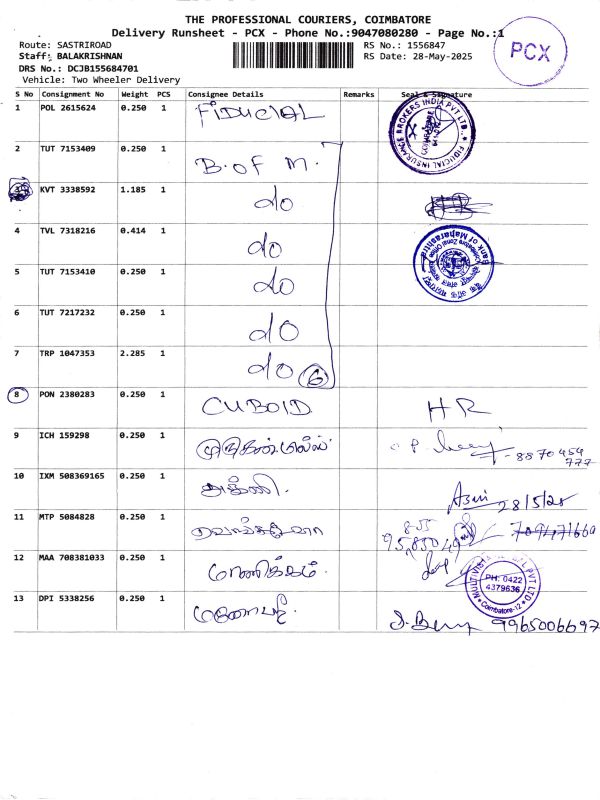 THE PROFESSIONAL COURIERS, COIMBATORE
Delivery Runsheet - PCX - Phone No.:9047080280 - Page No.:1
Route: SASTRIROAD
RS No.: 1556847
PCX
Staff: BALAKRISHNAN
RS Date: 28-May-2025
DRS No.: DCJB155684701
Vehicle: Two Wheeler Delivery
S No Consignment No Weight PCS Consignee Details Remarks Seal & Signature
1 POL 2615624 0.250 1 FIDUCIAL
FIDUCIAL INSURANCE BROKERS INDIA PVT LTD. COIMBATORE
2 TUT 7153409 0.250 1 B.OF M.
3 KVT 3338592 1.185 1 do
4 TVL 7318216 0.414 1 do
Bank of Maharashtra Coimbatore Zonal Office
5 TUT 7153410 0.250 1 do
6 TUT 7217232 0.250 1 do
7 TRP 1047353 2.285 1 do 6
8 PON 2380283 0.250 1 CUBOID HR
9 ICH 159298 0.250 1 முருகன் மில்ஸ் -8870454
777
10 IXM 508369165 0.250 1 அக்னி. 28/5/25
11 MTP 5084828 0.250 1
12 MAA 708381033 0.250 1 மாணிக்கம்.
PH: 0422
4379636
Coimbatore-12
13 DPI 5338256 0.250 1 9965006697